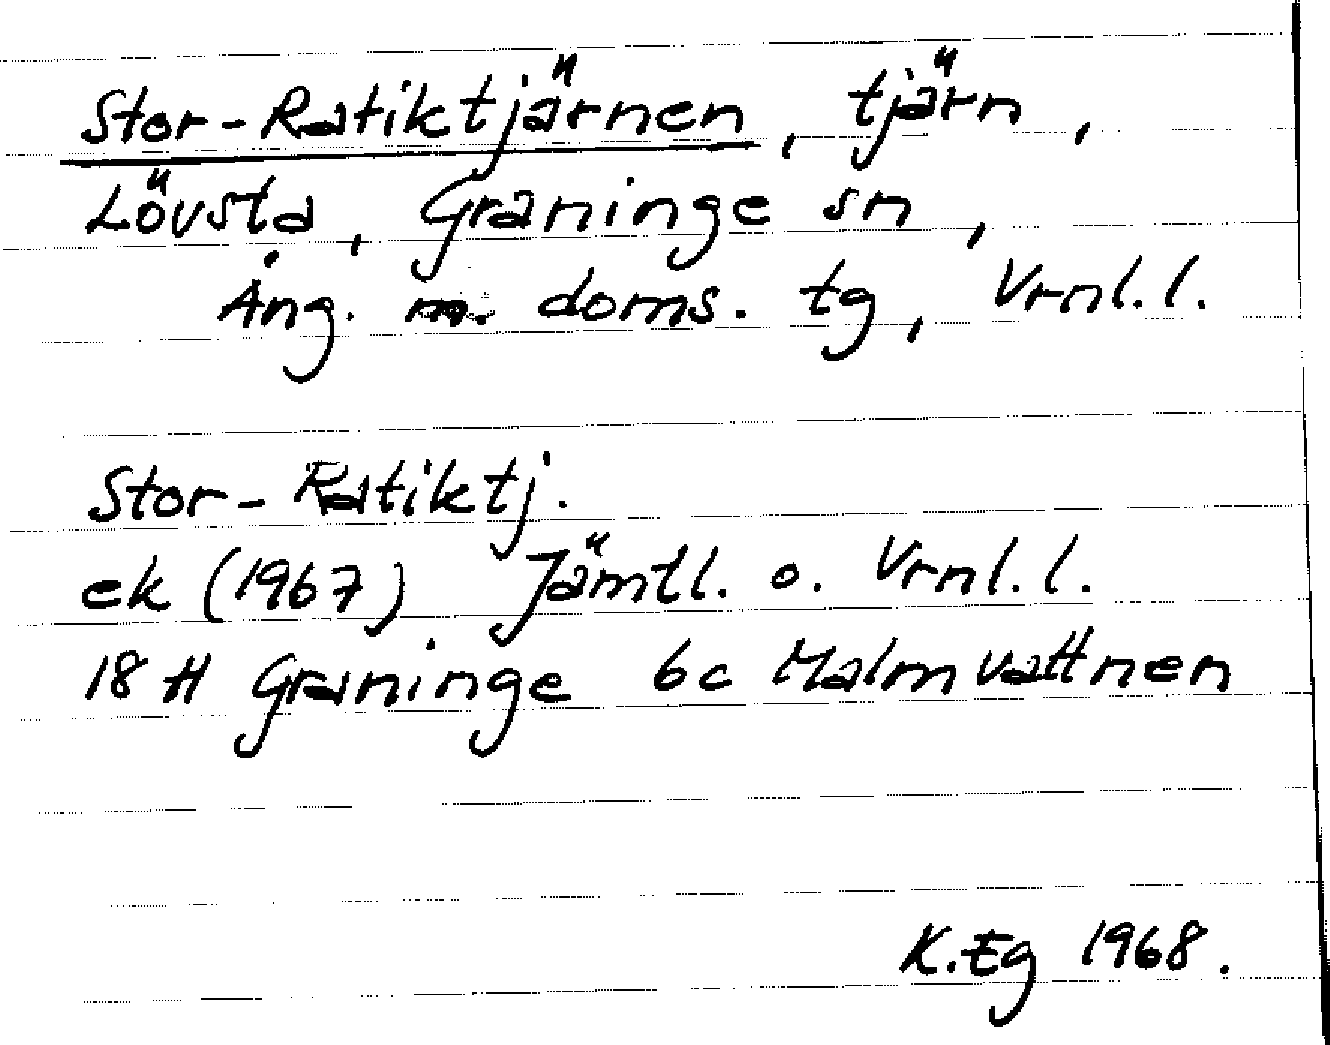 Stor-Ratiktjärnen, tjärn,
Lövsta, Graninge sn,
Ång. m. doms. tg, Vrnl. l.
Stor-Ratiktj.
ek (1967) Jämtl. o. Vrnl. l.
18 H Graninge 6c Malmvattnen
K. Eg 1968.